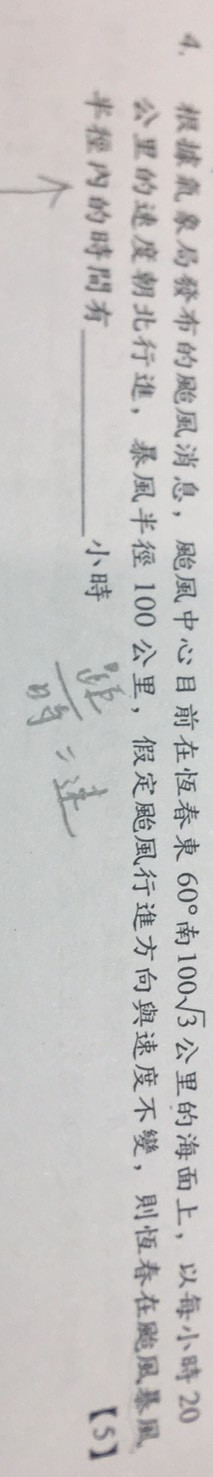 4. 根據氣象局發布的颱風消息，颱風中心目前在恆春東60°南100√3公里的海面上，以每小時20
公里的速度朝北行進，暴風半徑100公里，假定颱風行進方向與速度不變，則恆春在颱風暴風
半徑內的時間有________小時 【5】
距/時=速